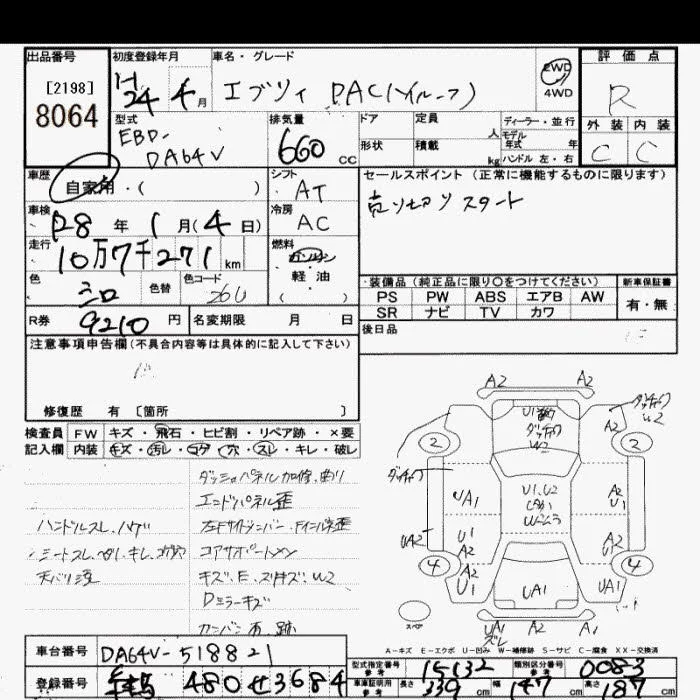 出品番号
[2198]
8064
初度登録年月
H24 4月
車名・グレード
エブリィ PAC(ハイルーフ)
2WD
4WD
評価点
R
外装 内装
C C
型式
EBD-
DA64V
排気量
660 cc
ドア 定員 人
形状 積載 kg
ディーラー・並行
モデル
年式 年
ハンドル 左・右
車歴
自家用・( )
シフト
AT
セールスポイント(正常に機能するものに限ります)
スタート
車検
28年 1月(4日)
冷房
AC
走行
10万7千271 km
燃料
ガソリン
軽油
( )
色
シロ
色替
色コード
26U
装備品(純正品に限り〇をつけてください)
PS PW ABS エアB AW
SR ナビ TV カワ
新車保証書
有・無
R券 9210円
名変期限 月 日
後日品
注意事項申告欄(不具合内容等は具体的に記入して下さい)
修復歴 有 [箇所 ]
検査員 FW キズ・飛石・ヒビ割・リペア跡・×要
記入欄 内装 キズ・汚レ・コゲ・穴・スレ・キレ・破レ
ダッシュパネル加修、曲り
エンドパネル歪
ハンドルスレ、ハゲ
コアサポートメン
キズ、E、スリキズ、W2
Dミラーキズ
A2 A2
U1
ダッチャク
W2
A2
2 2
ダッチャク
UA1
U1、U2
A2
U1
UA2
U1
A2
4 4
A2
U1
UA1
UA1
UA1
ズレ
A2 A1
スペア
A-キズ E-エクボ U-凹み W-補修跡 S-サビ C-腐食 XX-交換済
車台番号 DA64V-518821
型式指定番号
参考
15132
類別区分番号
参考
0083
登録番号 480 せ 3684
車庫証明用
参考
長さ 339 cm 幅 147 cm 高さ 187 cm